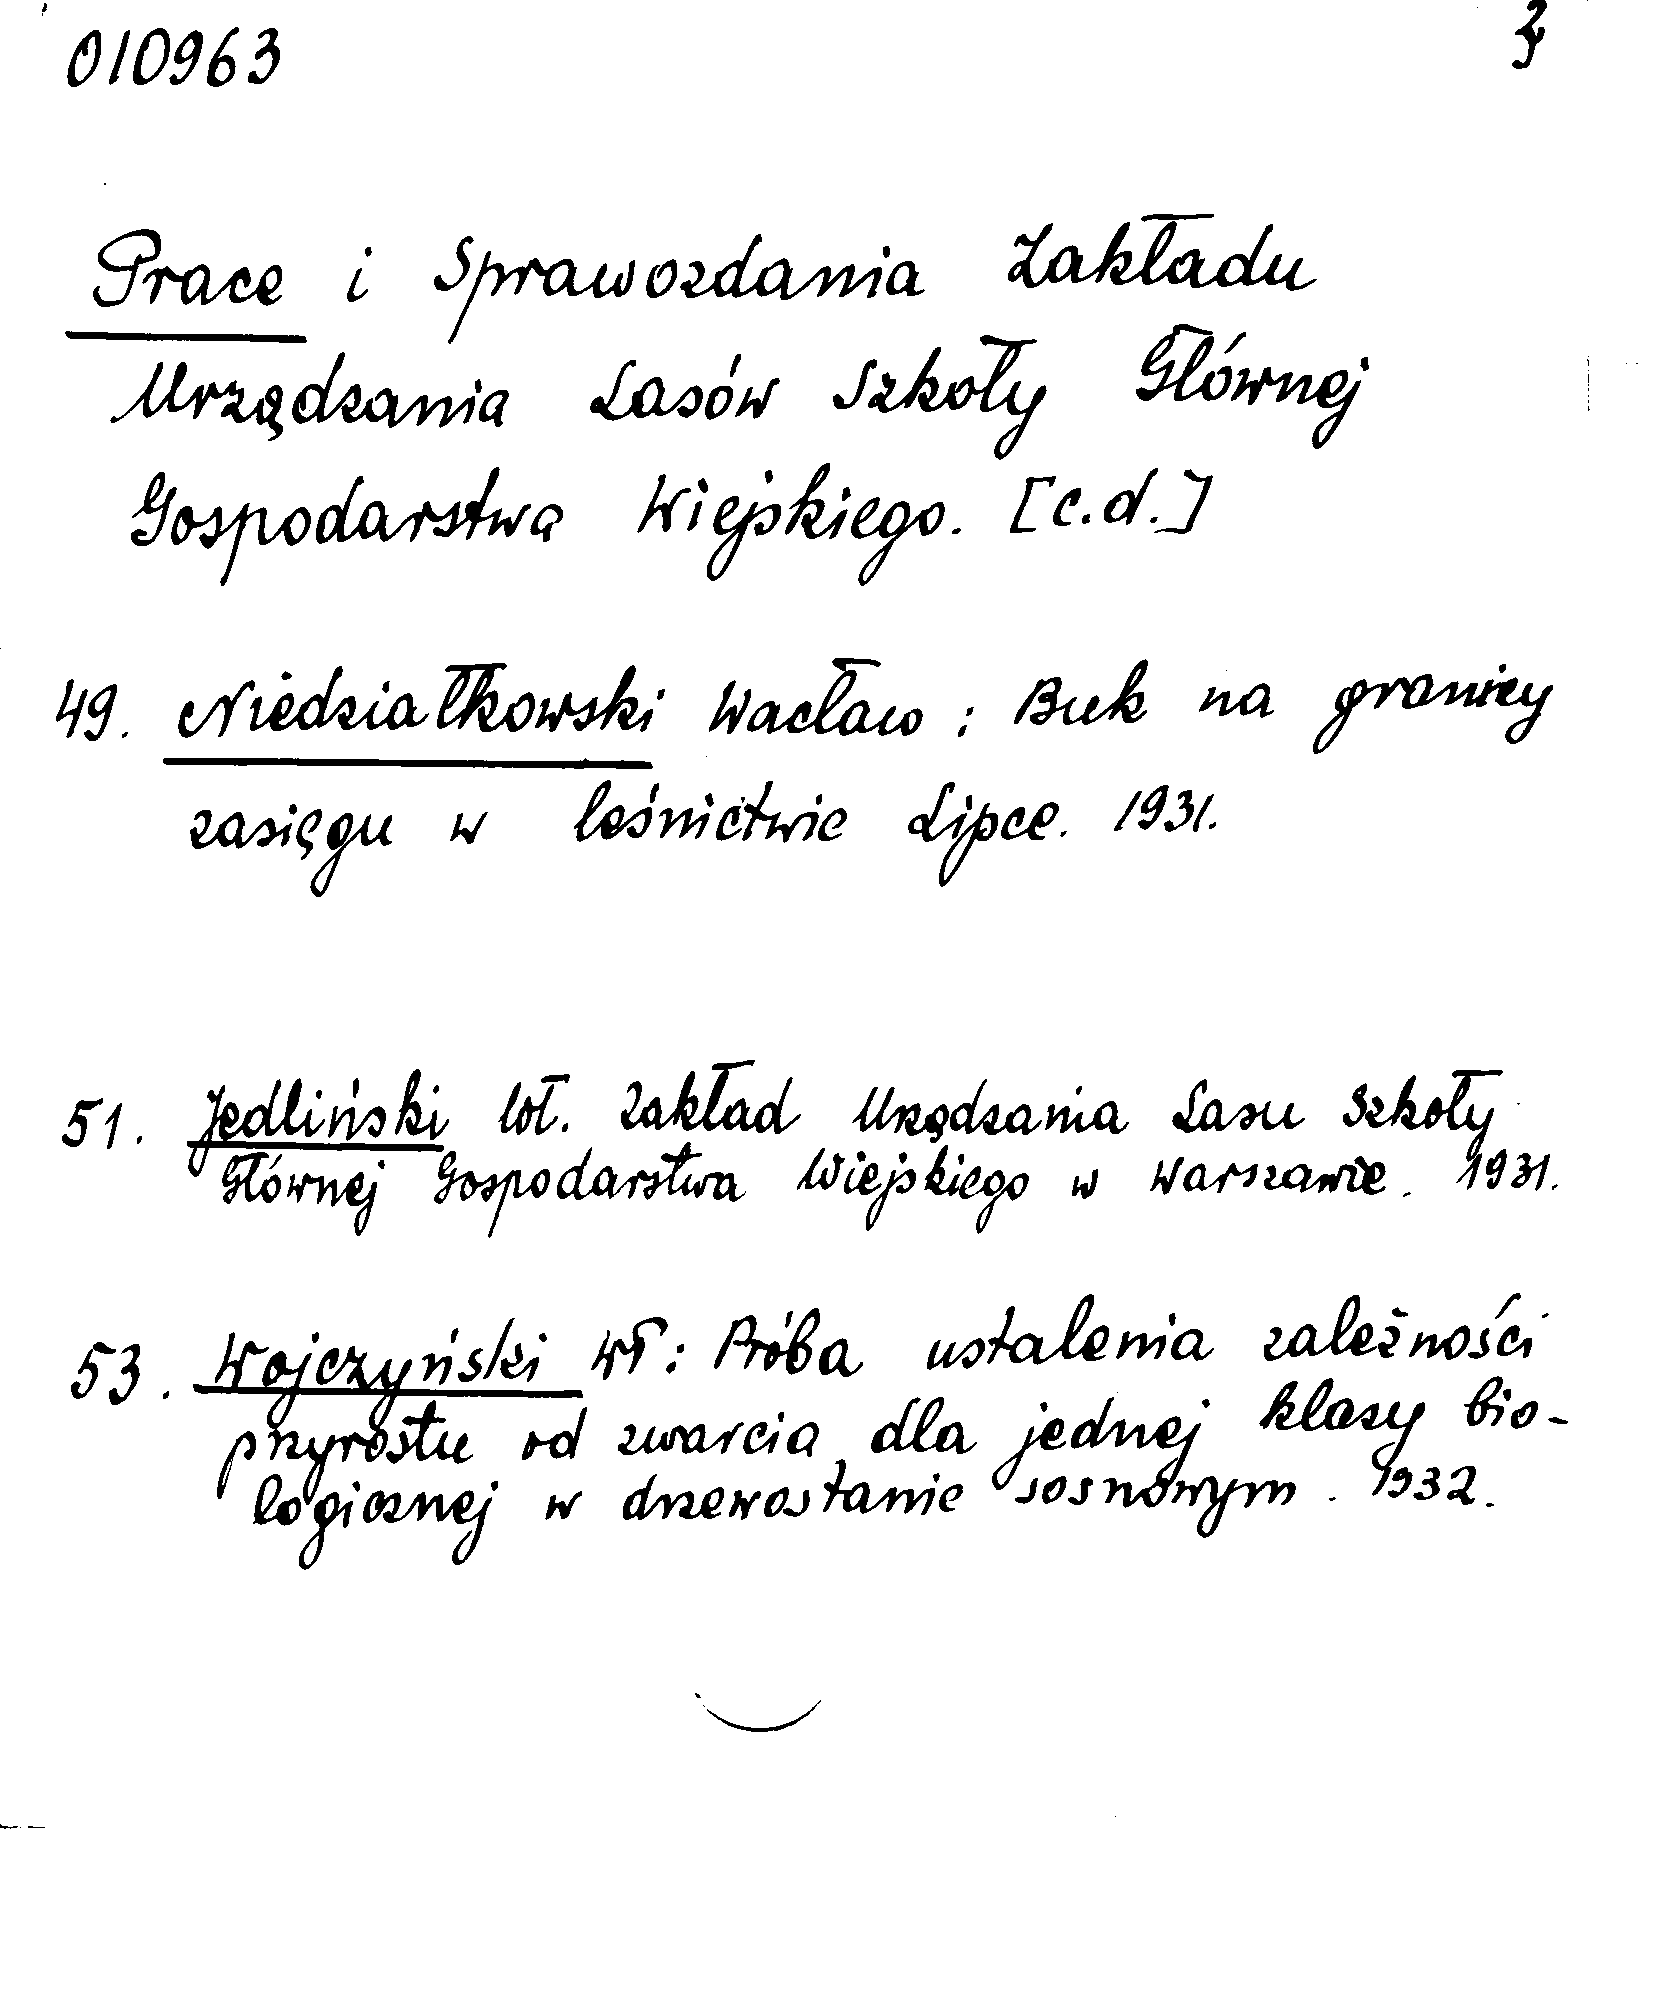 010963
Prace i Sprawozdania Zakładu
Urządzania Lasów Szkoły Głównej
Gospodarstwa Wiejskiego. [c.d.]
49. Niedziałkowski Wacław : Buk na granicy
zasięgu w leśnictwie Lipce. 1931.
51. Jedliński Wł. Zakład Urządzania Lasu Szkoły
Głównej Gospodarstwa Wiejskiego w Warszawie. 1931.
53. Wojczyński Wł: Próba ustalenia zależności
przyrostu od zwarcia dla jednej klasy bio-
logicznej w drzewostanie sosnowym. 1932.